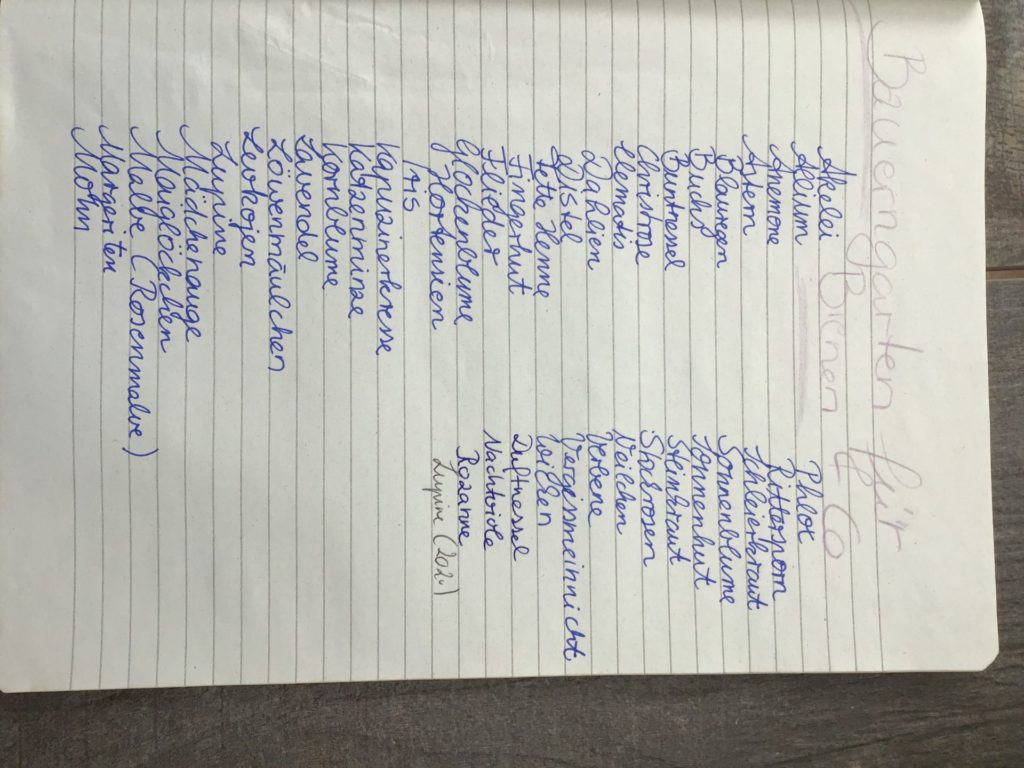 Bauerngarten für
Bienen & Co
Akelei
Allium
Anemone
Astern
Blauregen
Buchs
Buntnessel
Christrose
Clematis
Dahlien
Distel
Fette Henne
Fingerhut
Flieder
Glockenblume
Hortensien
Iris
Kapuzinerkresse
Katzenminze
Kornblume
Lavendel
Löwenmäulchen
Levkojen
Lupine
Mädchenauge
Maiglöckchen
Malve (Rosenmalve)
Margeriten
Mohn
Phlox
Rittersporn
Schleierkraut
Sonnenblume
Sonnenhut
Steinkraut
Stockrosen
Veilchen
Verbene
Vergissmeinnicht
Wicken
Duftnessel
Nachtviole
Rozanne
Lupine